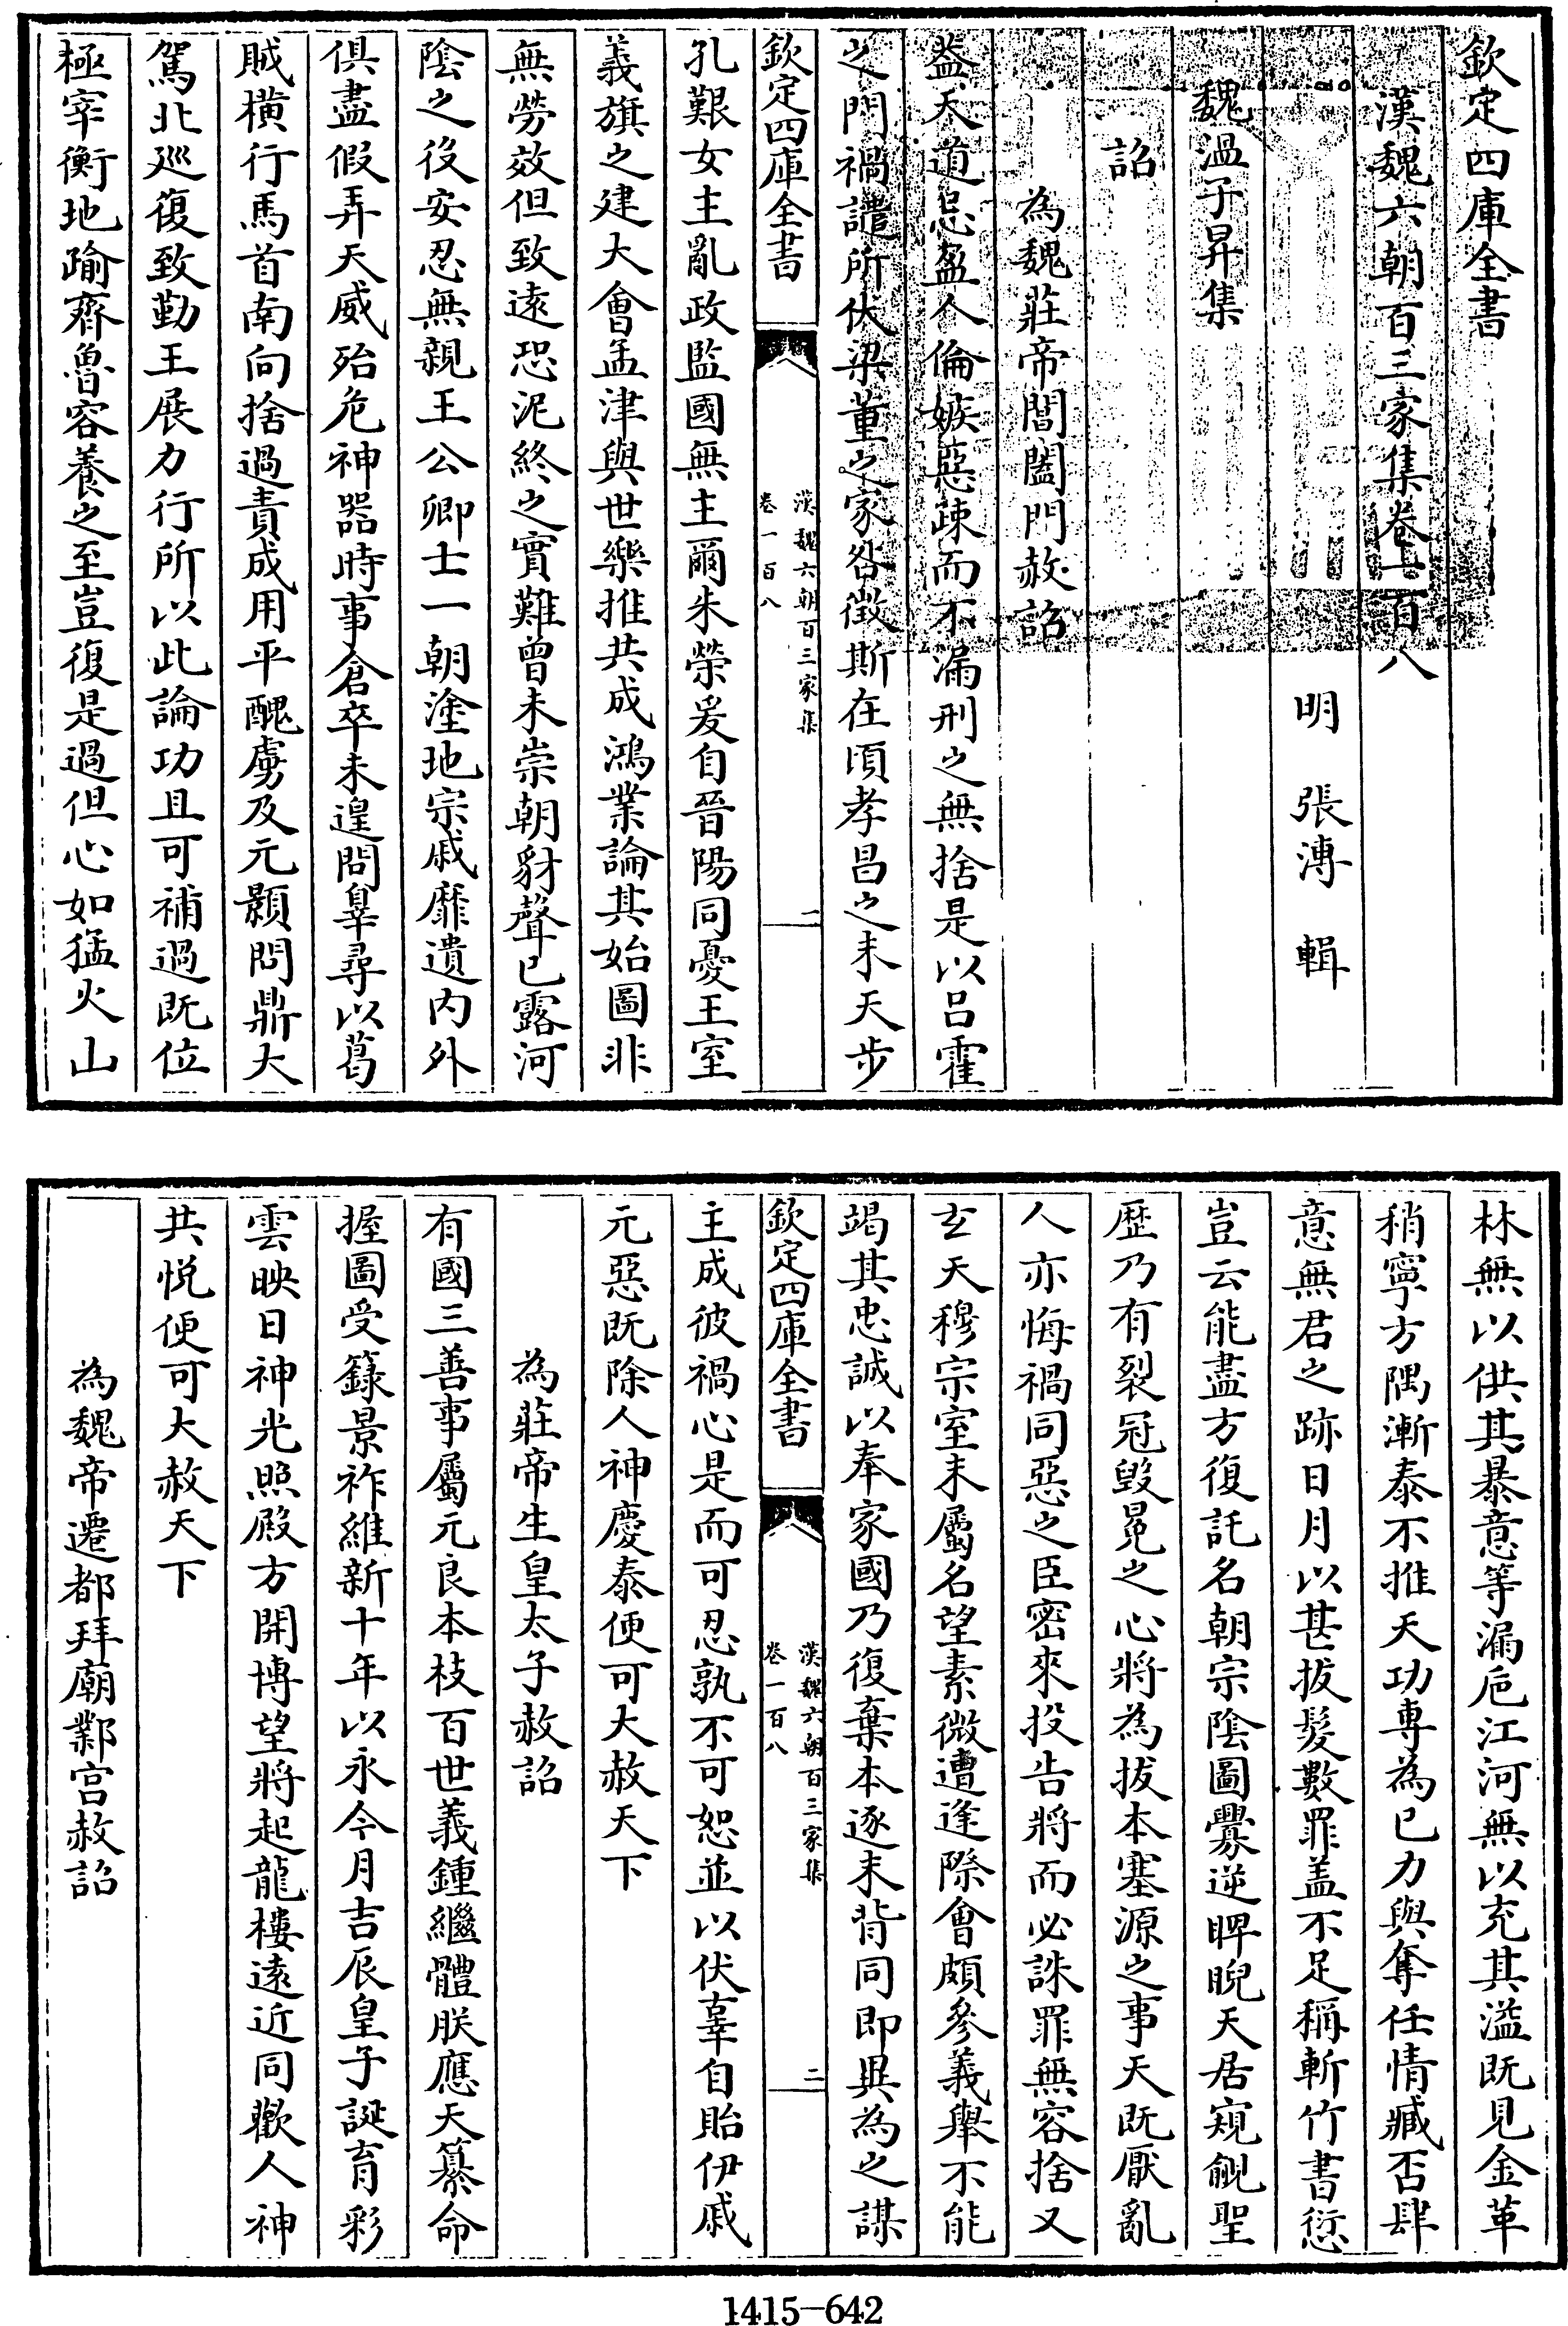 欽定四庫全書
漢魏六朝百三家集卷一百八
明 張溥 輯
魏溫子昇集
詔
為魏莊帝閶闔門赦詔
蓋天道忌盈人倫嫉惡疎而不漏刑之無捨是以呂霍
之門禍譴所伏梁董之家咎徵斯在頃孝昌之末天步
欽定四庫全書
漢魏六朝百三家集
卷一百八
一
孔艱女主亂政監國無主爾朱榮爰自晉陽同憂王室
義旗之建大會孟津與世樂推共成鴻業論其始圖非
無勞效但致遠恐泥終之實難曾未崇朝豺聲已露河
陰之役安忍無親王公卿士一朝塗地宗戚靡遺內外
俱盡假弄天威殆危神器時事倉卒未遑問辠尋以葛
賊橫行馬首南向捨過責成用平醜虜及元顥問鼎大
駕北廵復致勤王展力行所以此論功且可補過既位
極宰衡地踰齊魯容養之至豈復是過但心如猛火山
林無以供其暴意等漏巵江河無以充其溢既見金革
稍寧方隅漸泰不推天功專為已力與奪任情臧否肆
意無君之跡日月以甚拔髮數罪蓋不足稱斬竹書愆
豈云能盡方復託名朝宗陰圖釁逆睥睨天居窺覦聖
歴乃有裂冠毀冕之心將為拔本塞源之事天既厭亂
人亦悔禍同惡之臣密來投告將而必誅罪無容捨又
玄天穆宗室末屬名望素微遭逢際會頗參義舉不能
竭其忠誠以奉家國乃復棄本逐末背同即異為之謀
欽定四庫全書
漢魏六朝百三家集
卷一百八
二
主成彼禍心是而可忍孰不可恕並以伏辜自貽伊戚
元惡既除人神慶泰便可大赦天下
為莊帝生皇太子赦詔
有國三善事屬元良本枝百世義鍾繼體朕應天纂命
握圖受籙景祚維新十年以永今月吉辰皇子誕育彩
雲映日神光照殿方開博望將起龍樓遠近同歡人神
共悅便可大赦天下
為魏帝遷都拜廟鄴宮赦詔
1415-642